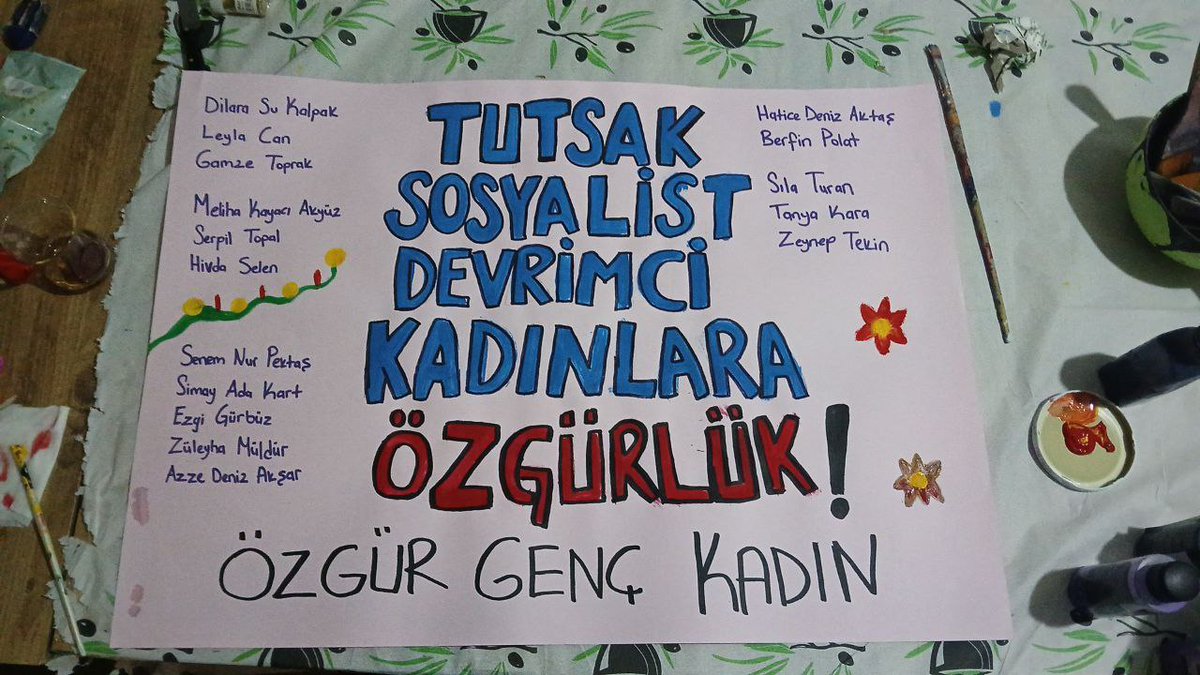 Dilara Su Kalpak
Leyla Can
Gamze Toprak
Meliha Kayacı Akyüz
Serpil Topal
Hivda Selen
Senem Nur Pektaş
Simay Ada Kart
Ezgi Gürbüz
Züleyha Müldür
Azze Deniz Akşar
TUTSAK
SOSYALİST
DEVRİMCİ
KADINLARA
ÖZGÜRLÜK!
Hatice Deniz Aktaş
Berfin Polat
Sıla Turan
Tanya Kara
Zeynep Tekin
ÖZGÜR GENÇ KADIN